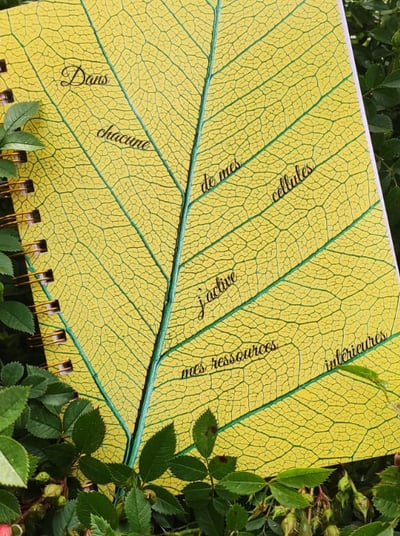 Dans
chacune
de mes
cellules
j'active
mes ressources
intérieures